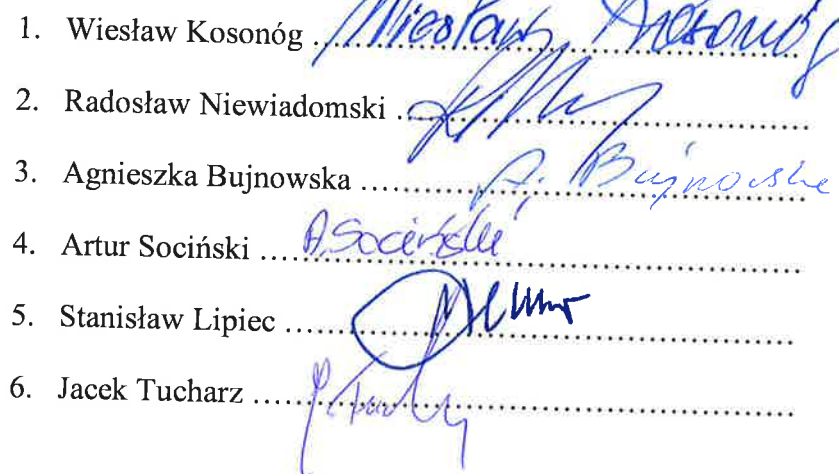 1. Wiesław Kosonóg ........ Wiesław Kosonóg
2. Radosław Niewiadomski ........
3. Agnieszka Bujnowska ........ A. Bujnowska
4. Artur Sociński ........ A. Sociński
5. Stanisław Lipiec ........
6. Jacek Tucharz ........